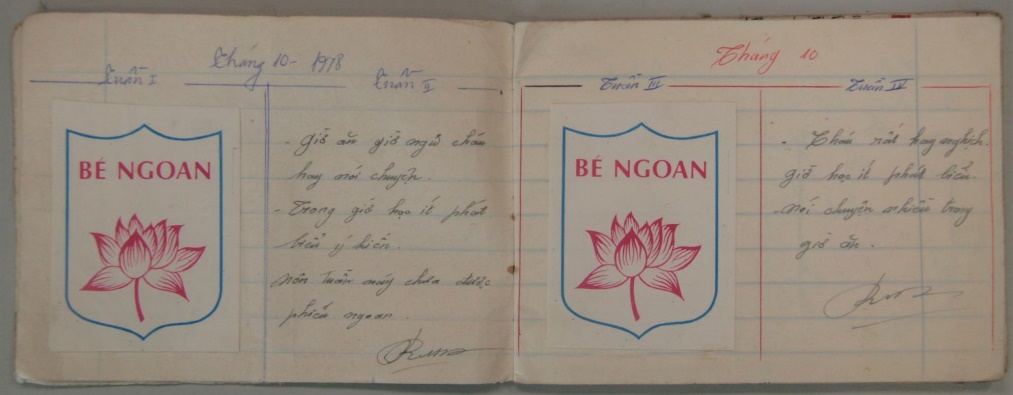 Tháng 10 - 1978
Tuần I
Tuần II
BÉ NGOAN
- Giờ ăn giờ ngủ cháu
hay nói chuyện.
- Trong giờ học ít phát
biểu ý kiến.
nên tuần này chưa được
phiếu ngoan.
Tháng 10
Tuần III
Tuần IV
BÉ NGOAN
- Cháu rất hay nghịch.
giờ học ít phát biểu.
nói chuyện nhiều trong
giờ ăn.